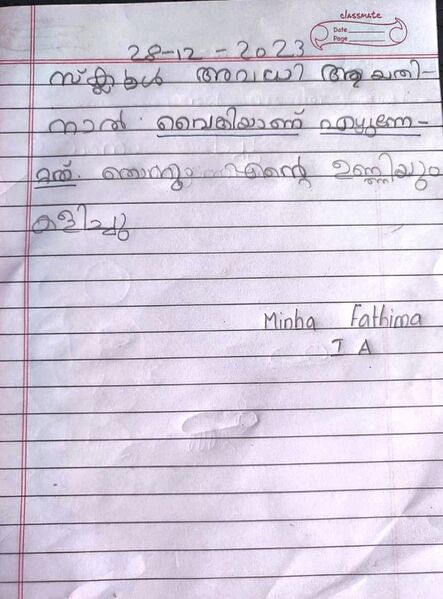 classmate
Date
Page
28-12-2023
സ്കൂൾ അവധി ആയതി
നാൽ വൈകിയാണ് എഴുന്നേ-
റ്റത്. ഞാനും എന്റെ ഉണ്ണിയും
കളിച്ചു
Minha Fathima
I A